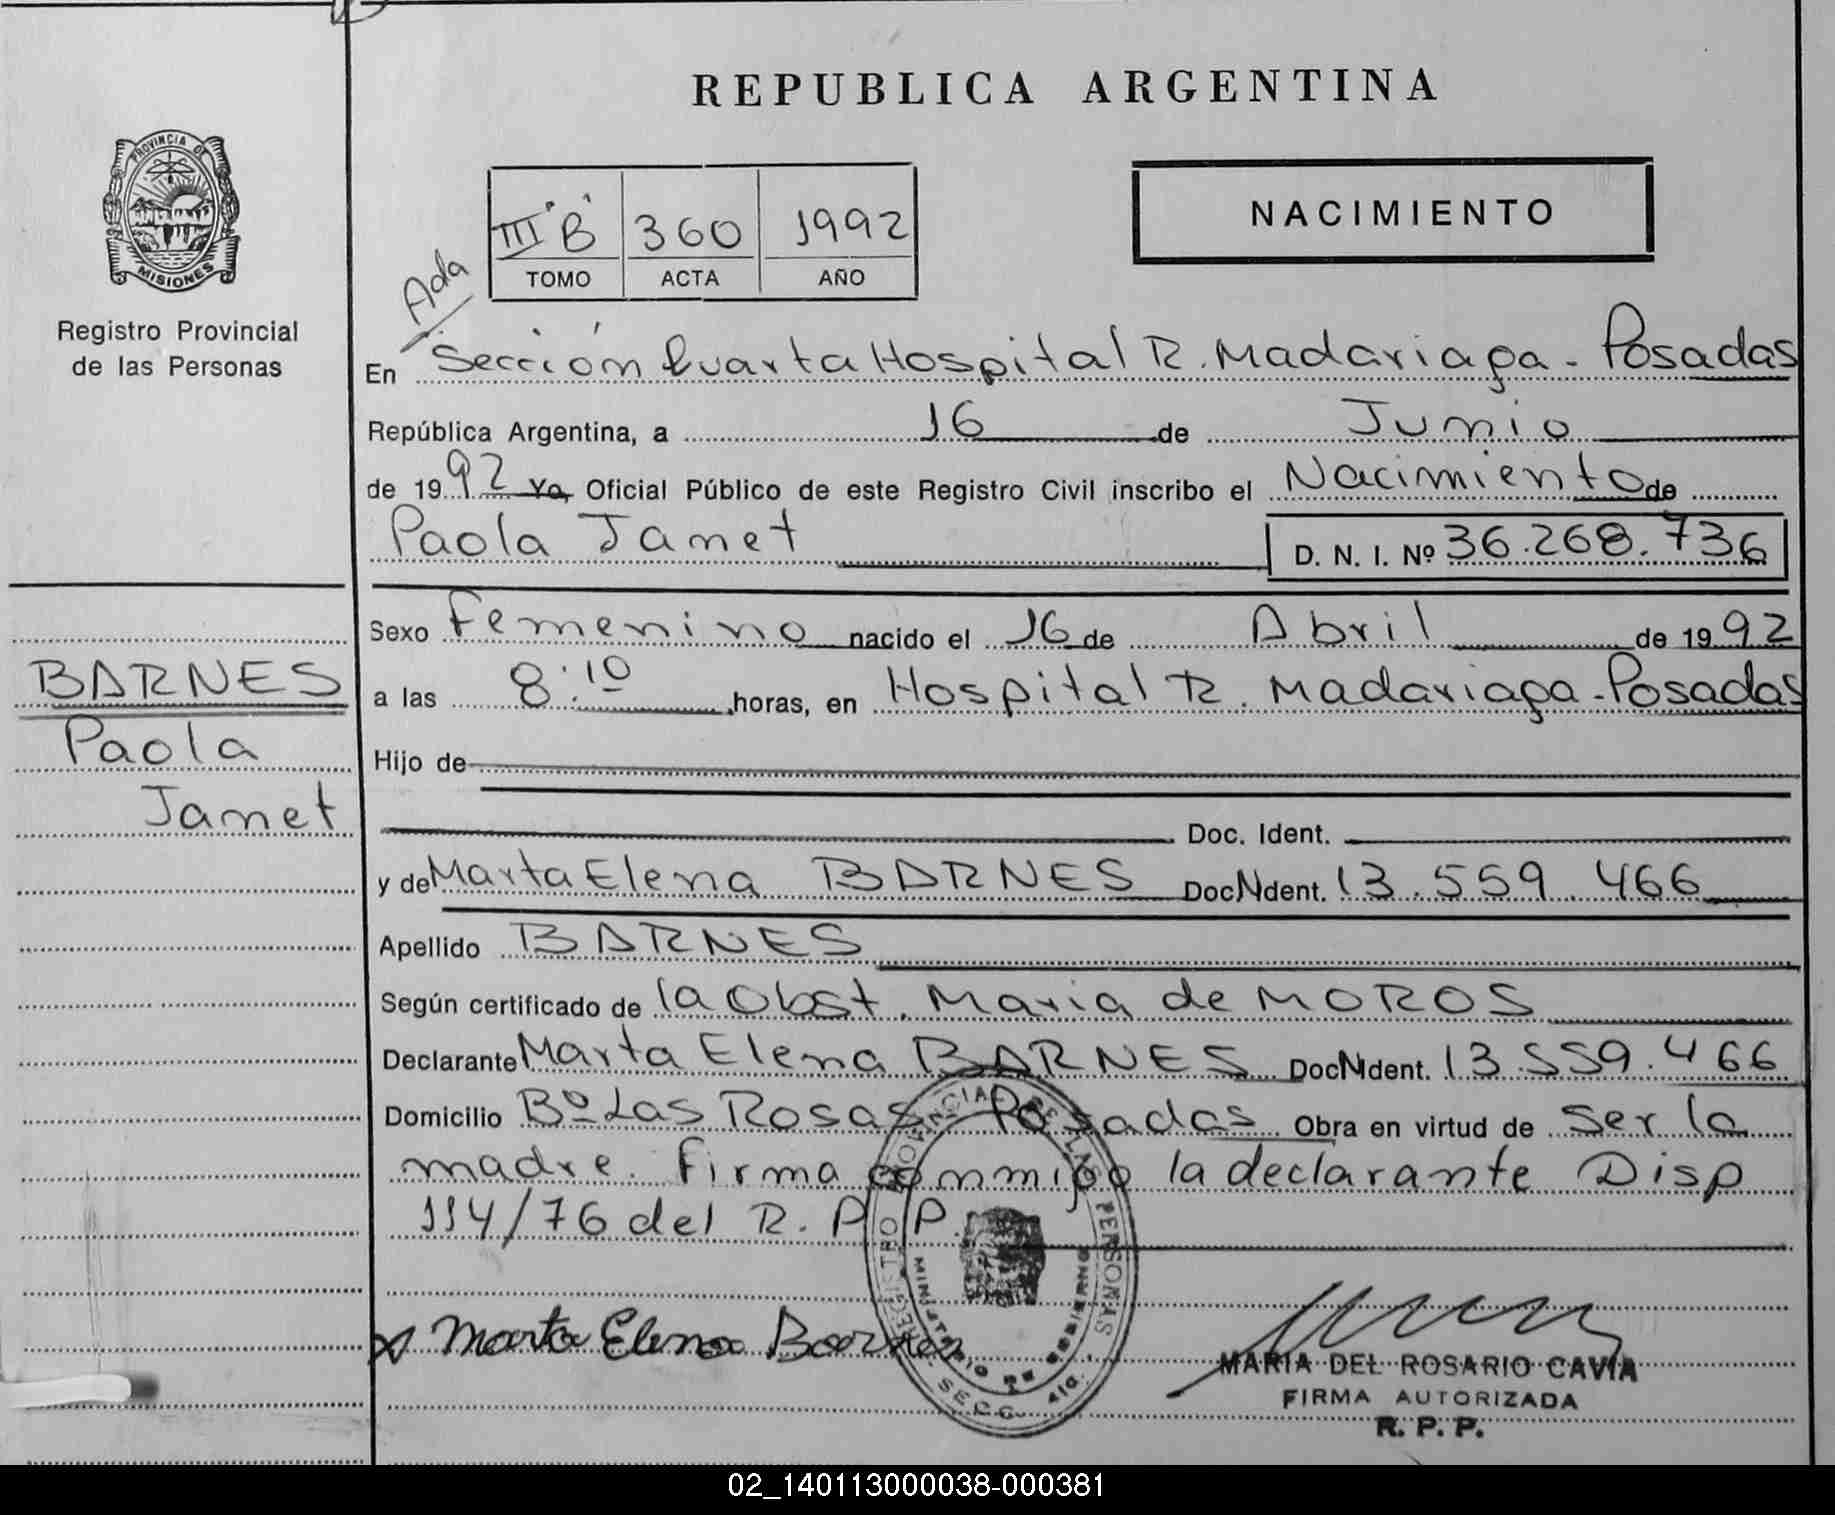 REPUBLICA ARGENTINA
PROVINCIA DE
MISIONES
Registro Provincial
de las Personas
III "B" 360 1992
TOMO ACTA AÑO
NACIMIENTO
Ada
En Sección Cuarta Hospital R. Madariaga - Posadas
República Argentina, a 16 de Junio
de 1992 Yo, Oficial Público de este Registro Civil inscribo el Nacimiento de
Paola Janet D. N. I. Nº 36.268.736
Sexo Femenino nacido el 16 de Abril de 1992
a las 8:10 horas, en Hospital R. Madariaga - Posadas
Hijo de
Doc. Ident.
y de Marta Elena BARNES Doc N Ident. 13.559.466
Apellido BARNES
Según certificado de la Obst. Maria de MOROS
Declarante Marta Elena BARNES Doc N Ident. 13.559.466
Domicilio Bº Las Rosas Posadas Obra en virtud de ser la
madre. Firma conmigo la declarante Disp
114/76 del R.P.P.
BARNES
Paola
Janet
REGISTRO PROVINCIAL DE LAS PERSONAS
MINISTERIO DE GOBIERNO
SECC. 4ta.
Marta Elena Barnes
MARIA DEL ROSARIO CAVIA
FIRMA AUTORIZADA
R. P. P.
02_140113000038-000381